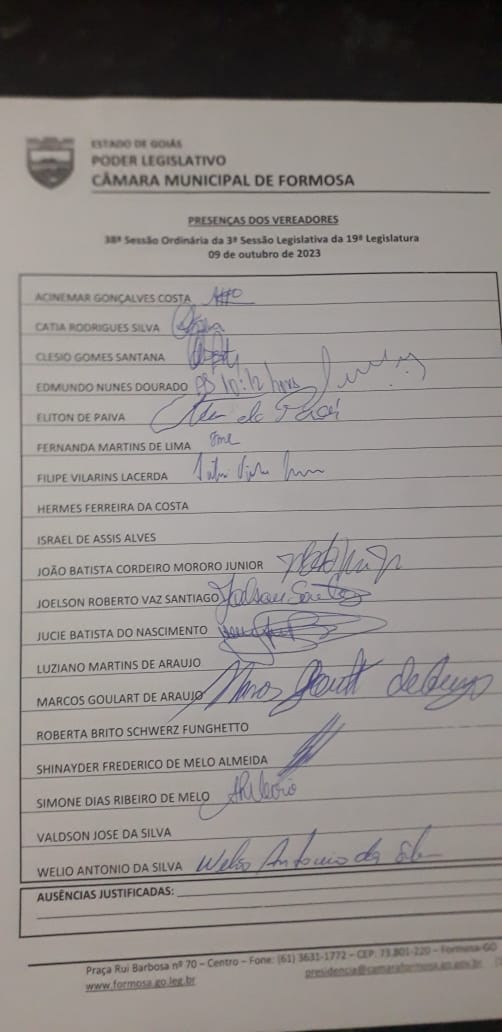 ESTADO DE GOIÁS
PODER LEGISLATIVO
CÂMARA MUNICIPAL DE FORMOSA
PRESENÇAS DOS VEREADORES
38ª Sessão Ordinária da 3ª Sessão Legislativa da 19ª Legislatura
09 de outubro de 2023
ACINEMAR GONÇALVES COSTA
CATIA RODRIGUES SILVA
CLESIO GOMES SANTANA
EDMUNDO NUNES DOURADO 10:12 hrs
ELITON DE PAIVA
FERNANDA MARTINS DE LIMA
FILIPE VILARINS LACERDA
HERMES FERREIRA DA COSTA
ISRAEL DE ASSIS ALVES
JOÃO BATISTA CORDEIRO MORORO JUNIOR
JOELSON ROBERTO VAZ SANTIAGO Joelson Santiago
JUCIE BATISTA DO NASCIMENTO
LUZIANO MARTINS DE ARAUJO
MARCOS GOULART DE ARAUJO Marcos Goulart de Araujo
ROBERTA BRITO SCHWERZ FUNGHETTO
SHINAYDER FREDERICO DE MELO ALMEIDA
SIMONE DIAS RIBEIRO DE MELO
VALDSON JOSE DA SILVA
WELIO ANTONIO DA SILVA Welio Antonio da Silva
AUSÊNCIAS JUSTIFICADAS:
Praça Rui Barbosa nº 70 – Centro – Fone: (61) 3631-1772 – CEP: 73.801-220 – Formosa-GO
www.formosa.go.leg.br presidencia@camaraformosa.go.gov.br